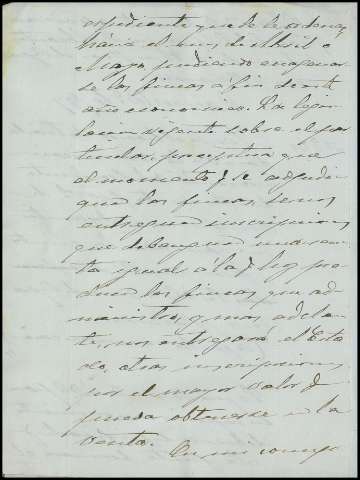 espediente que de le ordena,
hácia el mes de Abril o
Mayo, pudiendo enagenar
se las fincas á fin de este
año economico. La legis-
lacion vigente sobre el par
ticular, preceptua que
al momento q. se adjudi
quen las fincas, se nos
entreguen inscripciones
que devenguen una ren-
ta igual á la q. hoy pro
ducen las fincas, que ad-
ministro, y mas adelan
te, nos entregará el Esta
do, otras inscripciones,
por el mayor valor q.
pueda obtenerse en la
venta. En mi concep